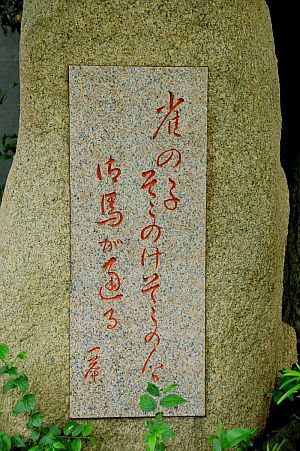 雀の子そこのけそこのけ
御馬が通る
一茶